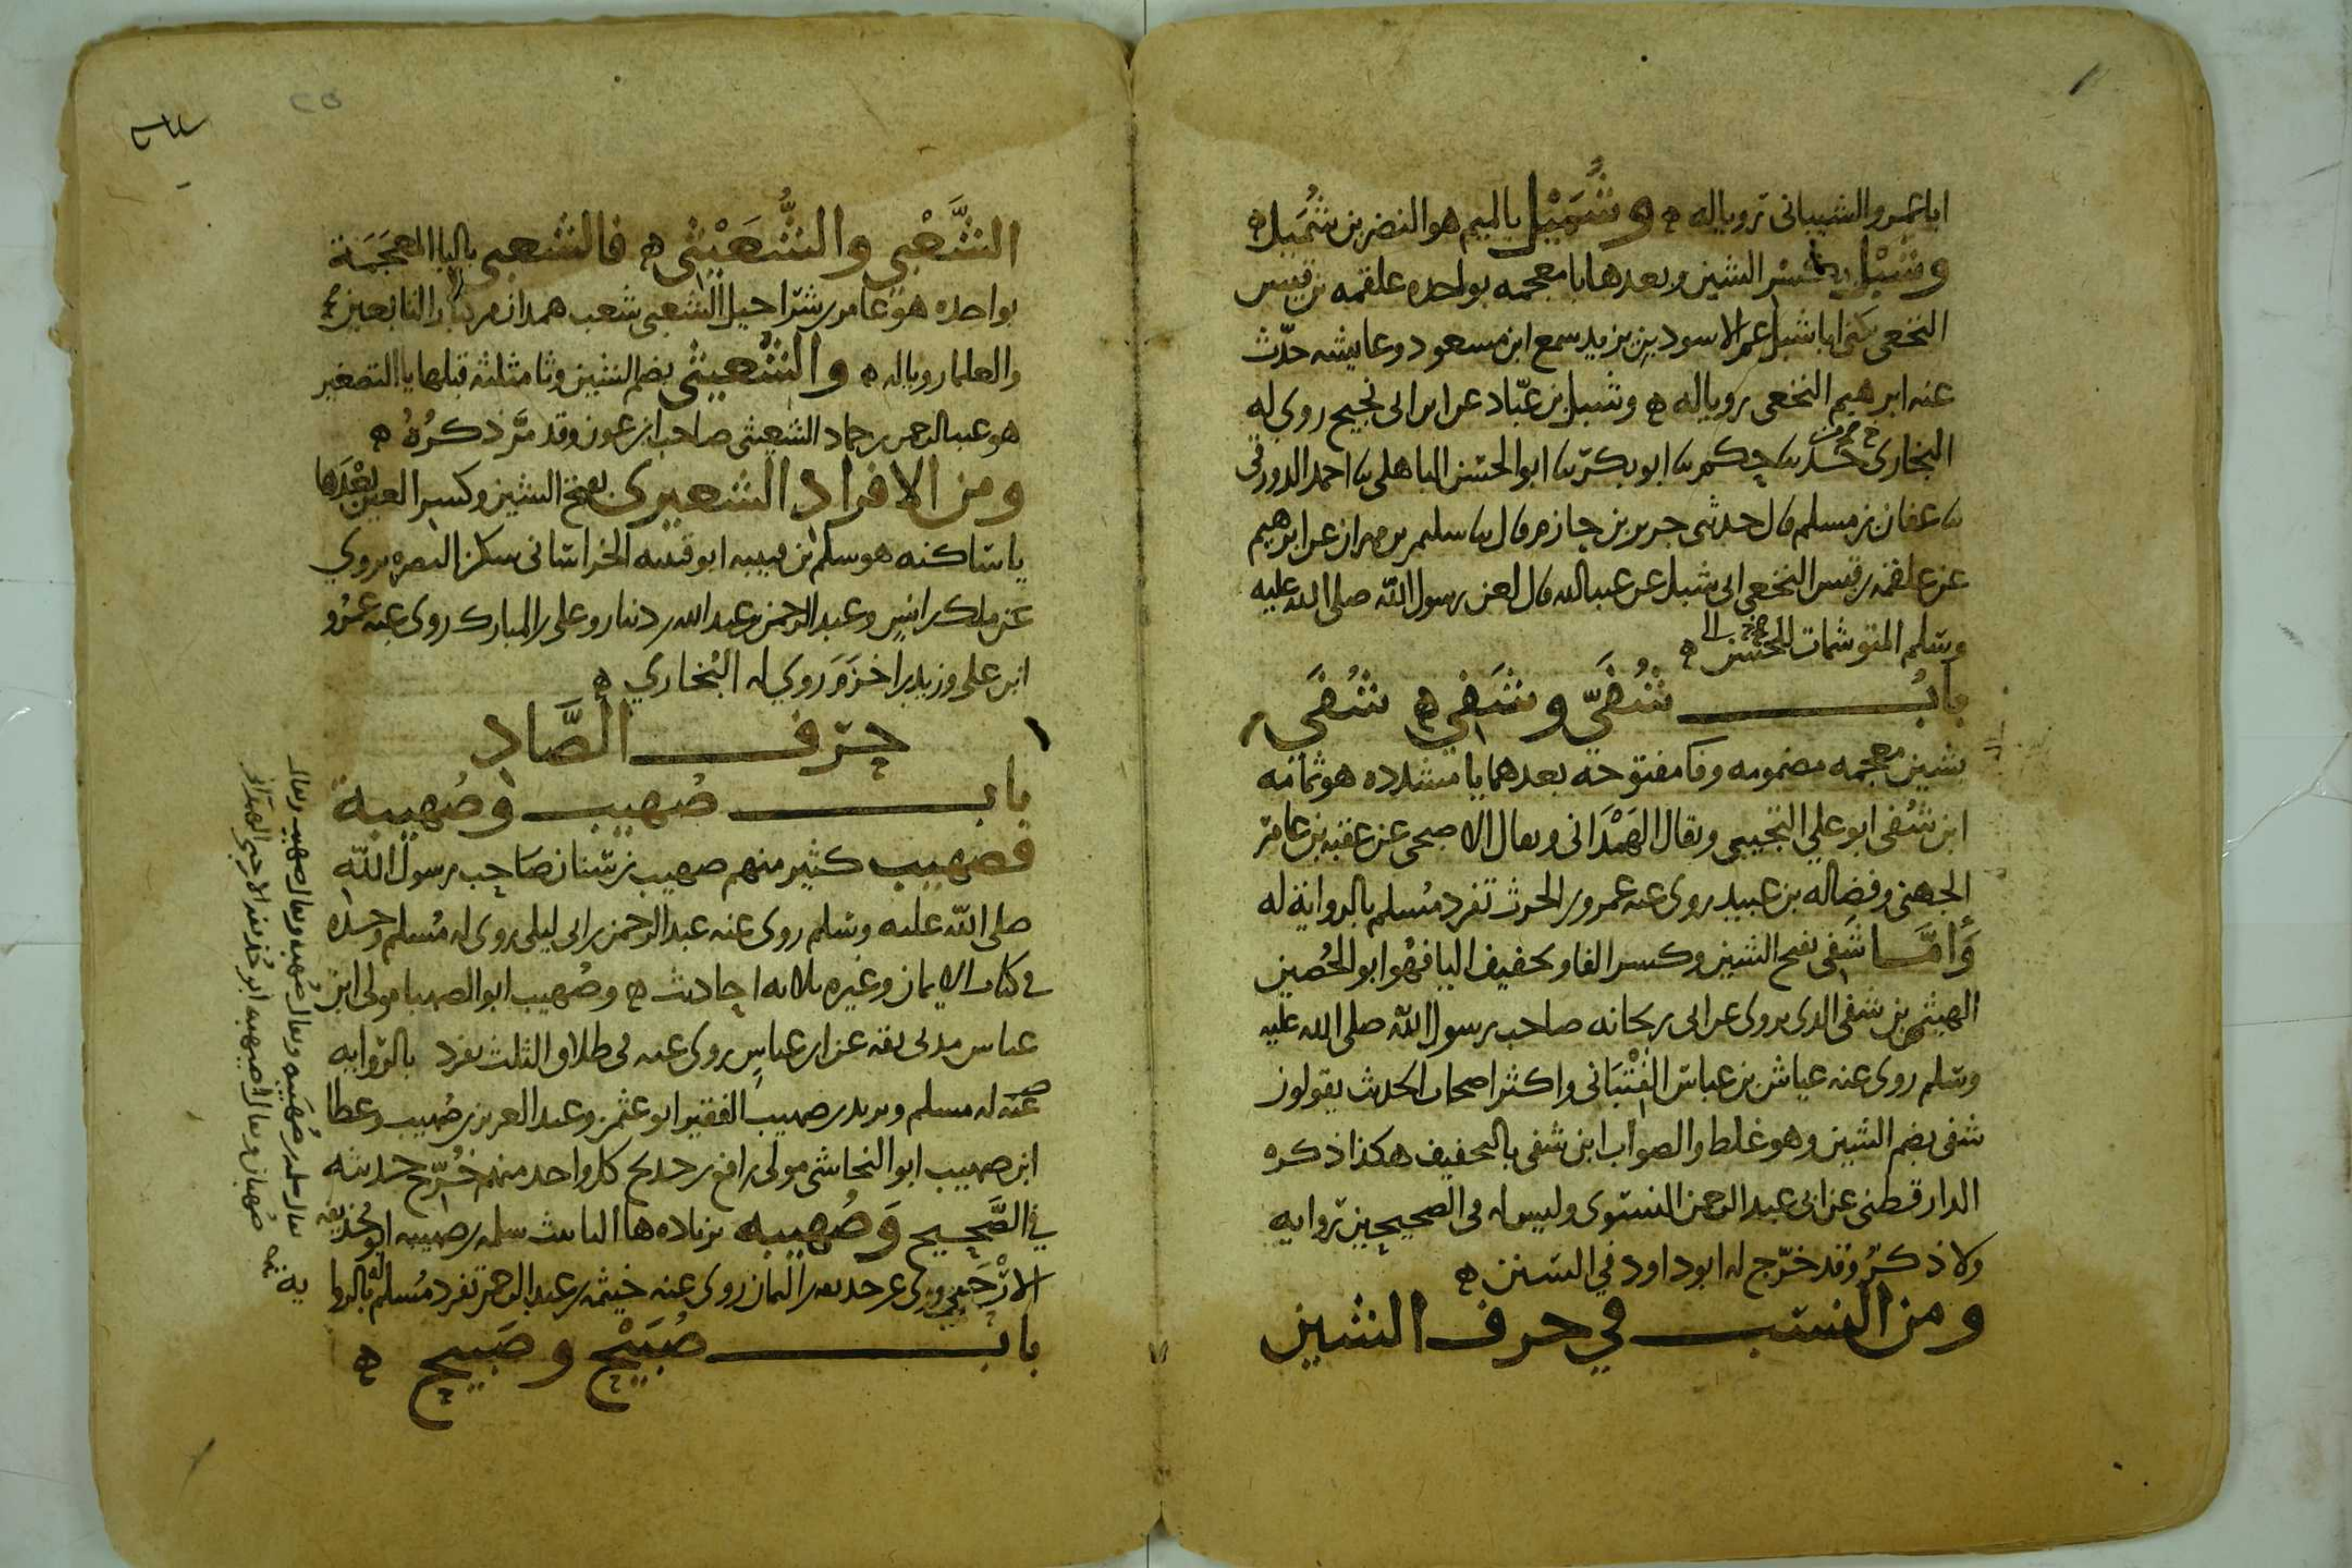 ابا عمرو الشيباني رويا له ه وشُمَيْل بالميم هو النضر بن شُمَيل ه
وشِبْل بكسر الشين وبعدها با معجمه بواحده علقمه بن قيس
النخعي يكنى ابا شبل عم الاسود بن يزيد سمع ابن مسعود وعايشه حدّث
عنه ابرهيم النخعي رويا له ه وشبل بن عبّاد عن ابن ابي نجيح روى له
البخاري حدثنا حكم نا ابو بكر نا ابو الحسن الباهلي نا احمد الدورقي
نا عفان بن مسلم قال حدثني جرير بن حازم قال نا سليمن بن مهران عن ابرهيم
عن علقمه بن قيس النخعي ابي شبل عن عبد الله قال لعن رسول الله صلى الله عليه
وسلم المتوشمات للحسن ه
بابُ شُفَيّ وشَفِي ه شُفَي
بشين معجمه مضمومه وفا مفتوحه بعدهما يا مشدده هو ثمامه
ابن شُفي ابو علي التجيبي ويقال الهَمْدَاني ويقال الاصبحي عن عقبه بن عامر
الجهني وفضاله بن عبيد روى عنه عمرو بن الحرث تفرد مُسلم بالرواية له
وَأمَّا شَفِي بفتح الشين وكسر الفا وتخفيف اليا فهُو ابو الحُصين
الهيثم بن شفي الذي يروى عن ابي ريحانه صاحب رسول الله صلى الله عليه
وسلم روى عنه عياش بن عباس القِتْبَاني واكثر اصحاب الحديث يقولون
شفي بضم الشين وهو غلط والصواب ابن شفي بالتخفيف هكذا ذكره
الدارقطني عن ابي عبد الرحمن النسوي وليس له في الصحيحين روايه
ولا ذكرٌ وقد خرّج له ابو داود في السنن ه
ومن النسب في حرف الشين
الشَّعْبي والشُّعَيْثي ه فالشعبي باليا المعجمَة
بواحده هو عامر بن شراحيل الشعبي شعب همدان من كبار التابعين
والعلما رويا له ه والشُّعيثي بضم الشين وثا مثلثه قبلها يا التصغير
هو عبد الرحمن بن حماد الشعيثي صاحب ابن عون وقد مَرَّ ذكرُهُ ه
ومن الافراد الشعيري بفتح الشين وكسر العين بَعْدَها
يا ساكنه هو سلم بن قتيبه ابو قتيبه الخراساني سكن البصره يروي
عن ملك بن انس وعبد الرحمن بن عبد الله بن دينار وعلي بن المبارك روى عنه عمرو
ابن علي وزيد بن اخزَم روي له البُخاري ه
حرف الصَّاد
باب صُهيب وصُهيبة
فصُهيب كثير منهم صهيب بن سنان صَاحب رسول الله
صلى الله عليه وسلم روى عنه عبد الرحمن بن ابي ليلى روى له مُسلم وحده
في كتاب الايمان وغيره ثلاثه احاديث ه وصُهيب ابو الصهبا مولى ابن
عباس مدني ثقه عن ابن عباس روى عنه في طلاق الثلث تفرد بالروايه
عنه له مسلم ويزيد بن صهيب الفقير ابو عثمن وعبد العزيز بن صُهيب وعطا
ابن صهيب ابو النجاشي مولى رافع بن خديج كل واحد منهم خُرّج حديثه
في الصَّحِيح وَصُهيبه بزياده ها التانيث سلمه بن صهيبه ابو حُذيفه
الارْحَبي روى عن حذيفه بن اليمان روى عنه خيثمه بن عبد الرحمن تفرد مُسلم له بالروا
ية
باب صُبَيْح وصَبِيح ه
يقال سلمه بن صُهَيبه ويقال صُهبه ويقال صهيب ويقال
صُهبان ويقال اصيهبه ابو حُذيفه الارحبي الهمداني